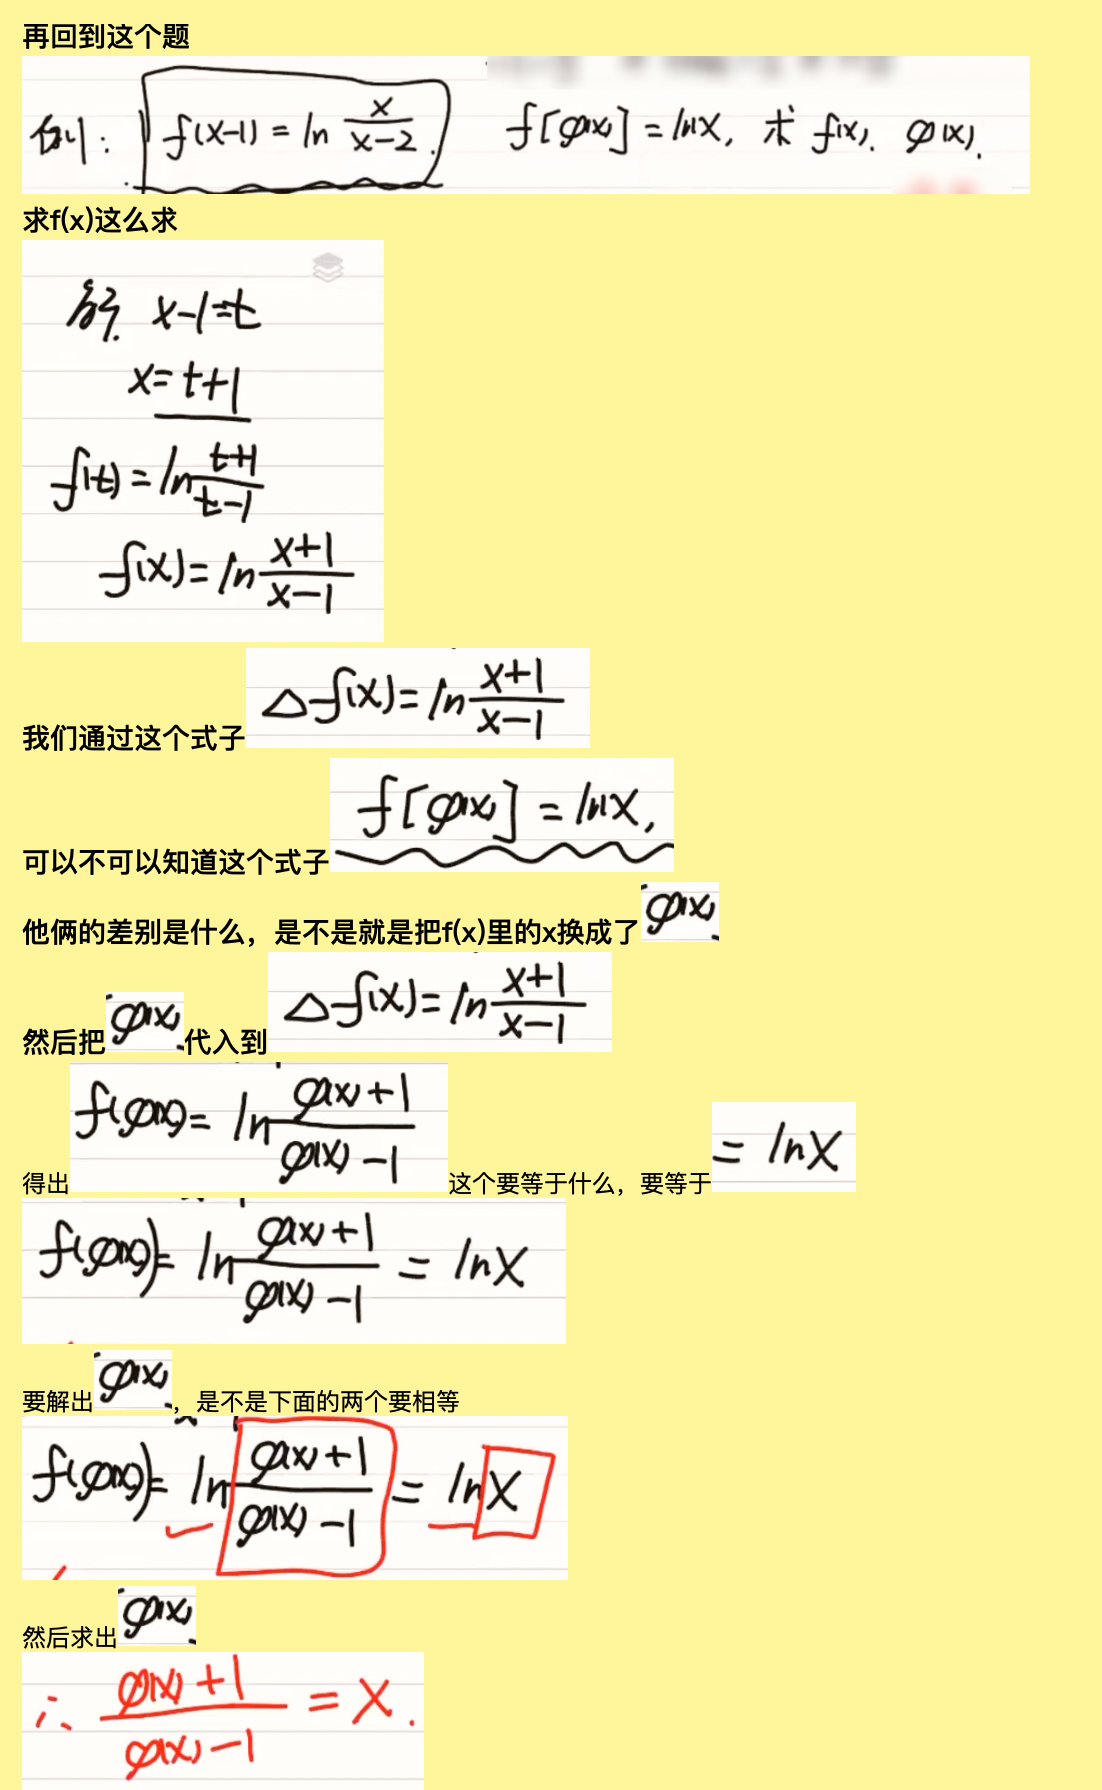 再回到这个题
例: f(x-1) = ln x/(x-2). f[φ(x)] = lnx, 求 f(x). φ(x).
求f(x)这么求
解. x-1=t
x=t+1
f(t) = ln (t+1)/(t-1)
f(x) = ln (x+1)/(x-1)
我们通过这个式子 △f(x) = ln (x+1)/(x-1)
可以不可以知道这个式子 f[φ(x)] = lnx,
他俩的差别是什么，是不是就是把f(x)里的x换成了 φ(x)
然后把 φ(x) 代入到 △f(x) = ln (x+1)/(x-1)
得出 f(φ(x)) = ln (φ(x)+1)/(φ(x)-1) 这个要等于什么，要等于 = lnx
f(φ(x)) = ln (φ(x)+1)/(φ(x)-1) = lnx
要解出 φ(x)，是不是下面的两个要相等
f(φ(x)) = ln (φ(x)+1)/(φ(x)-1) = lnx
然后求出 φ(x)
∴ (φ(x)+1)/(φ(x)-1) = x.